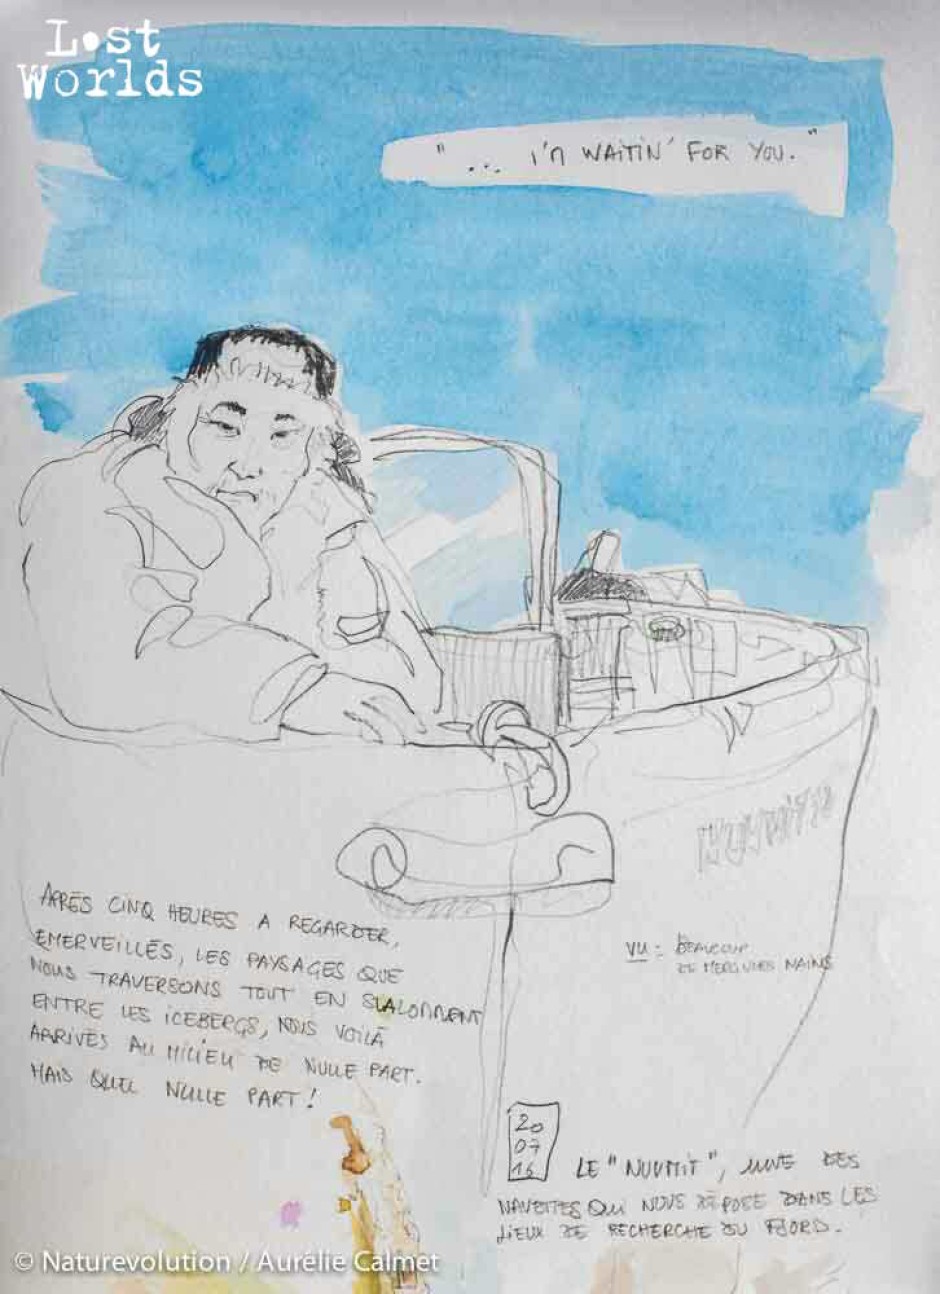 Lost
Worlds
"... I'M WAITIN' FOR YOU."
APRÈS CINQ HEURES A REGARDER,
EMERVEILLÉS, LES PAYSAGES QUE
NOUS TRAVERSONS TOUT EN SLALOMMENT
ENTRE LES ICEBERGS, NOUS VOILÀ
ARRIVÉS AU MILIEU DE NULLE PART.
MAIS QUEL NULLE PART !
VU : BEAUCOUP
DE MERGULES NAINS
20
07
16
LE "NUUMIT", UNE DES
NAVETTES QUI NOUS DÉPOSE DANS LES
LIEUX DE RECHERCHE DU FJORD.
© Naturevolution / Aurélie Calmet